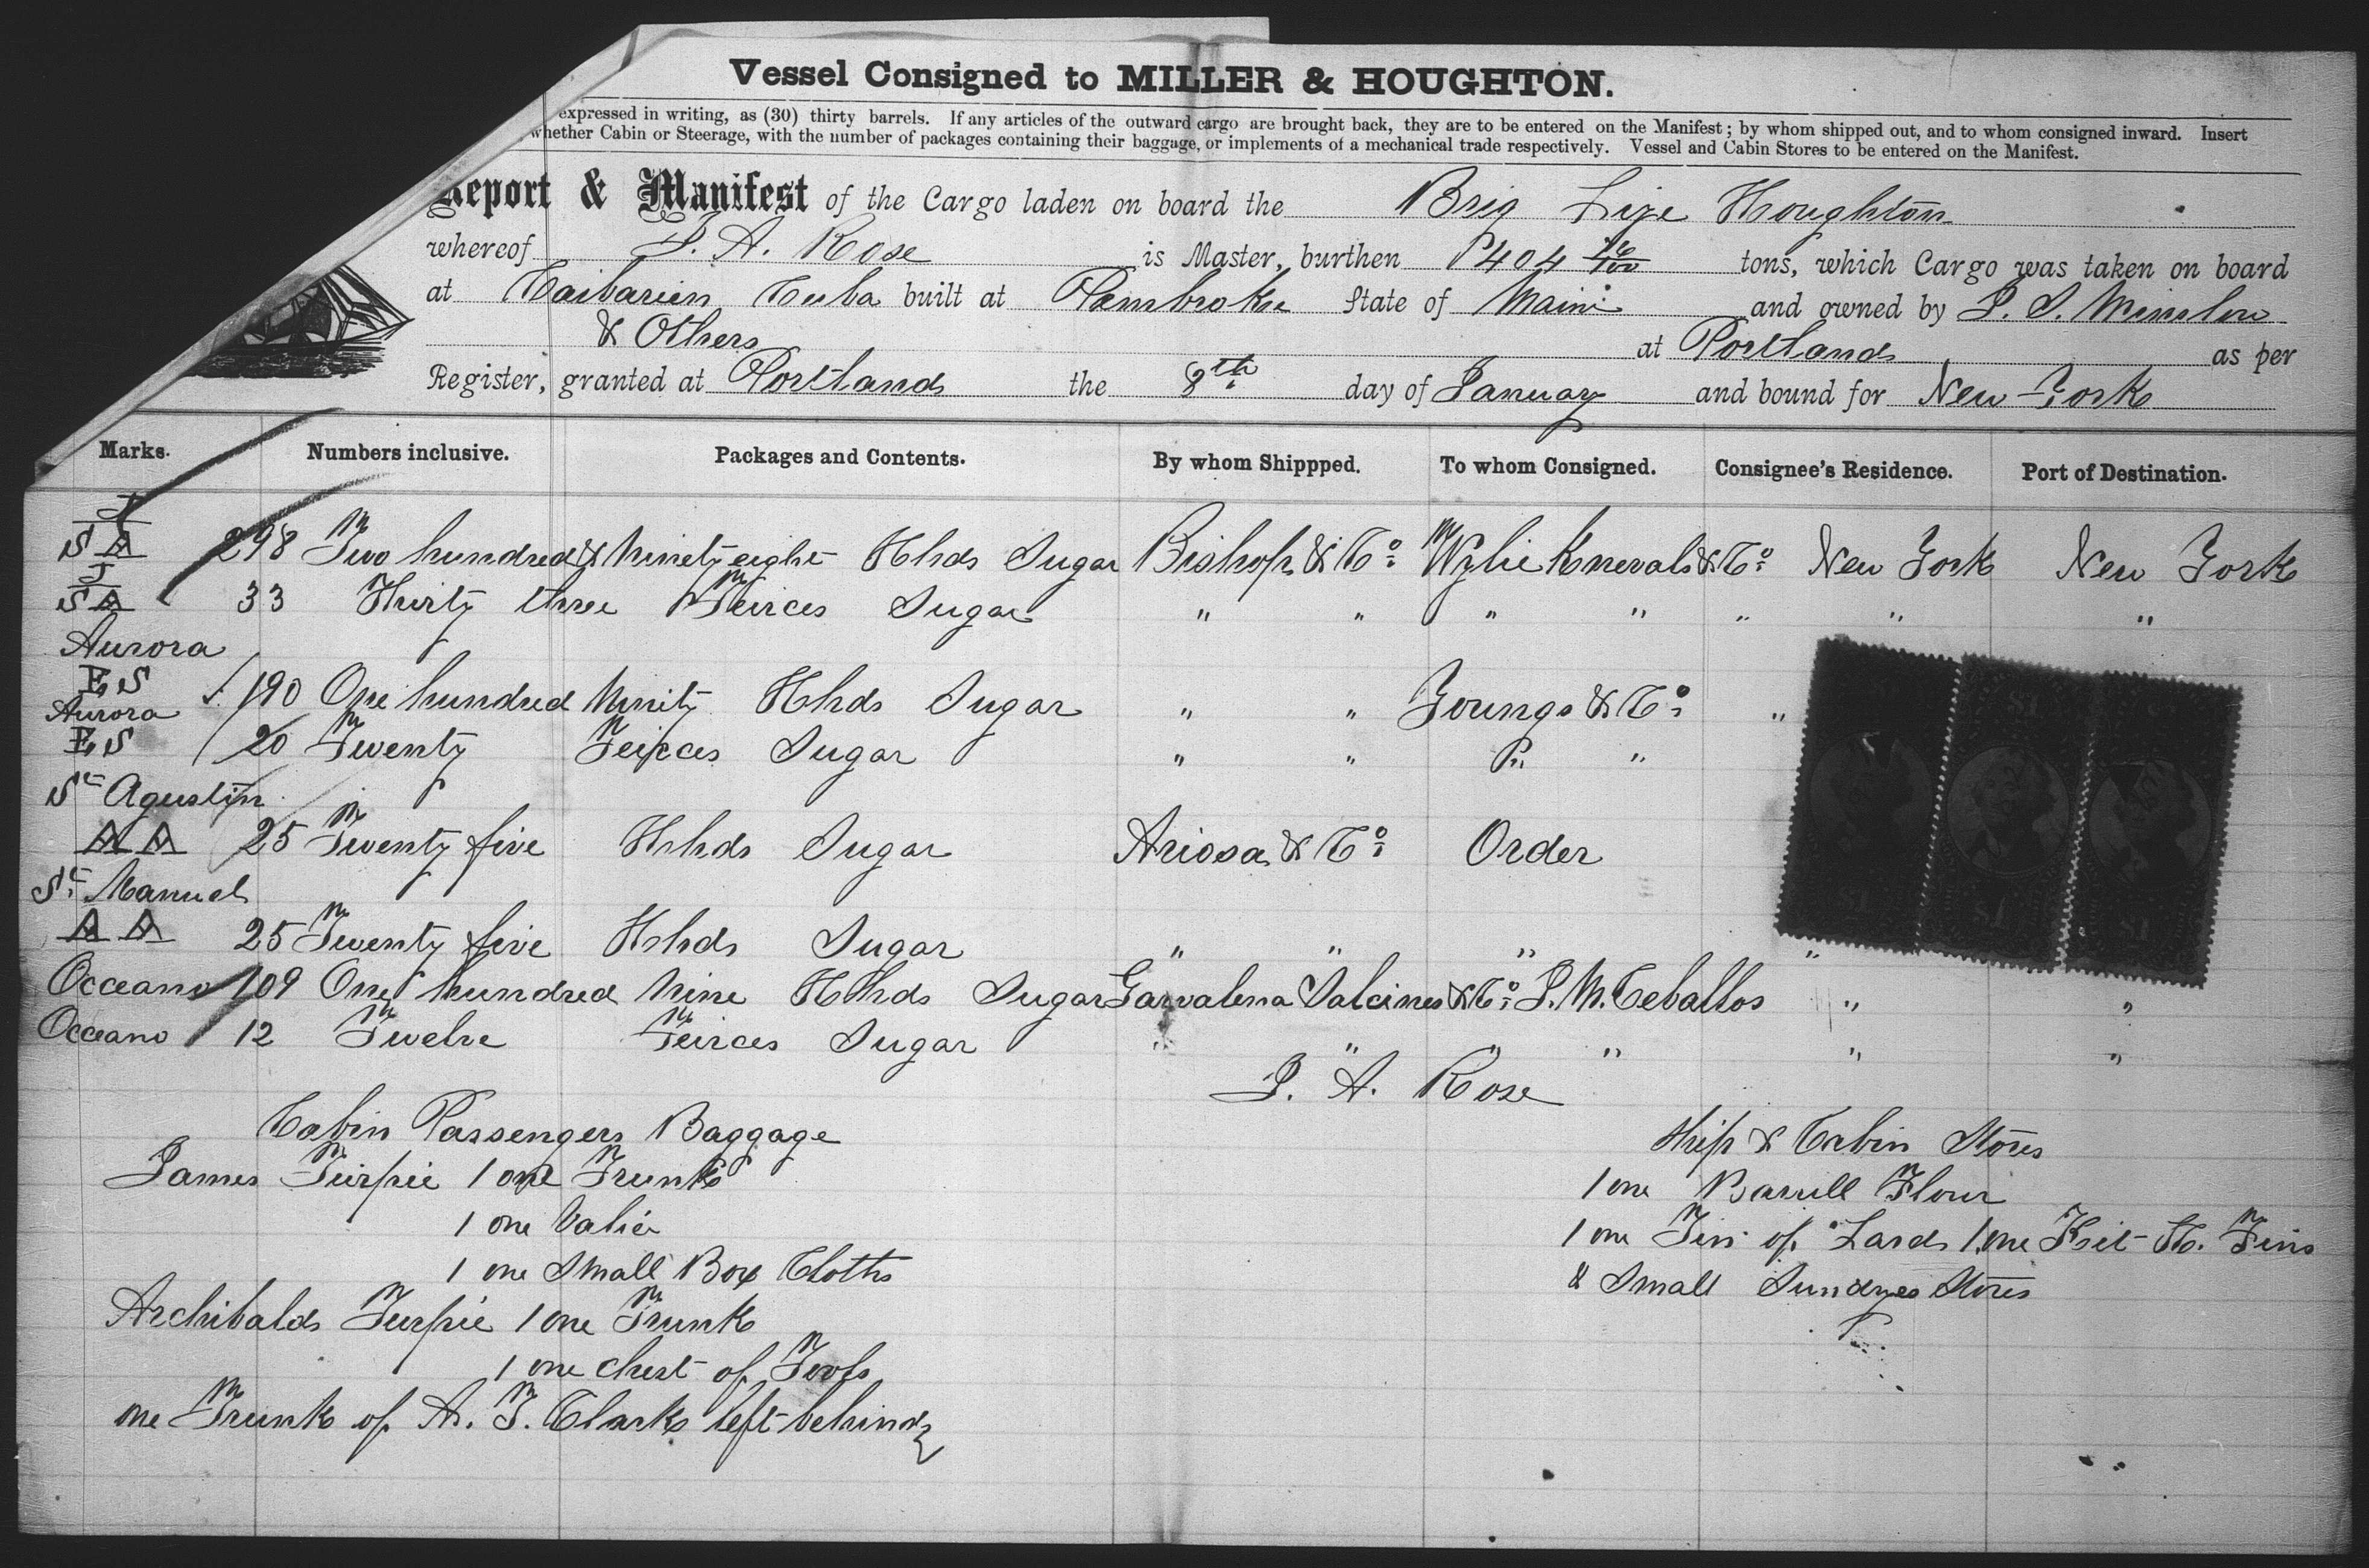 Vessel Consigned to MILLER & HOUGHTON.
expressed in writing, as (30) thirty barrels. If any articles of the outward cargo are brought back, they are to be entered on the Manifest; by whom shipped out, and to whom consigned inward. Insert
whether Cabin or Steerage, with the number of packages containing their baggage, or implements of a mechanical trade respectively. Vessel and Cabin Stores to be entered on the Manifest.
Report & Manifest of the Cargo laden on board the Brig Lize Houghton
whereof J. A. Rose is Master, burthen 404 tons, which Cargo was taken on board
at Caibarien Cuba built at Pembroke State of Maine and owned by J. S. Winslow
& Others at Portland as per
Register, granted at Portland the 8th day of January and bound for New-York
Marks. Numbers inclusive. Packages and Contents. By whom Shippped. To whom Consigned. Consignee's Residence. Port of Destination.
S A 298 Two hundred & Ninety eight Hhds Sugar Bishop & Co Wylie Knevals & Co New York New York
S A 33 Thirty three Teirces Sugar " " " " " " "
Aurora
E S 190 One hundred Ninity Hhds Sugar " " Youngs & Co "
Aurora
E S 20 Twenty Teirces Sugar " " "
St Agustin
A A 25 Twenty five Hhds Sugar Ariosa & Co Order
St Manuel
A A 25 Twenty five Hhds Sugar " " " "
Occeano 109 One hundred Nine Hhds Sugar Garvalena Salcines & Co J. M. Ceballos " "
Occeano 12 Twelve Teirces Sugar " " " " " "
J. A. Rose
Cabin Passengers Baggage
James Turpie 1 one Trunk
1 one Valie
1 one Small Box Cloths
Archibald Turpie 1 one Trunk
1 one chest of Tools
one Trunk of A. T. Clark left behind
Ship & Cabin Stores
1 one Barrell Flour
1 one Tin of Lard 1 one Kit Tins
& Small Sundyes Stores
$1 $1 $1